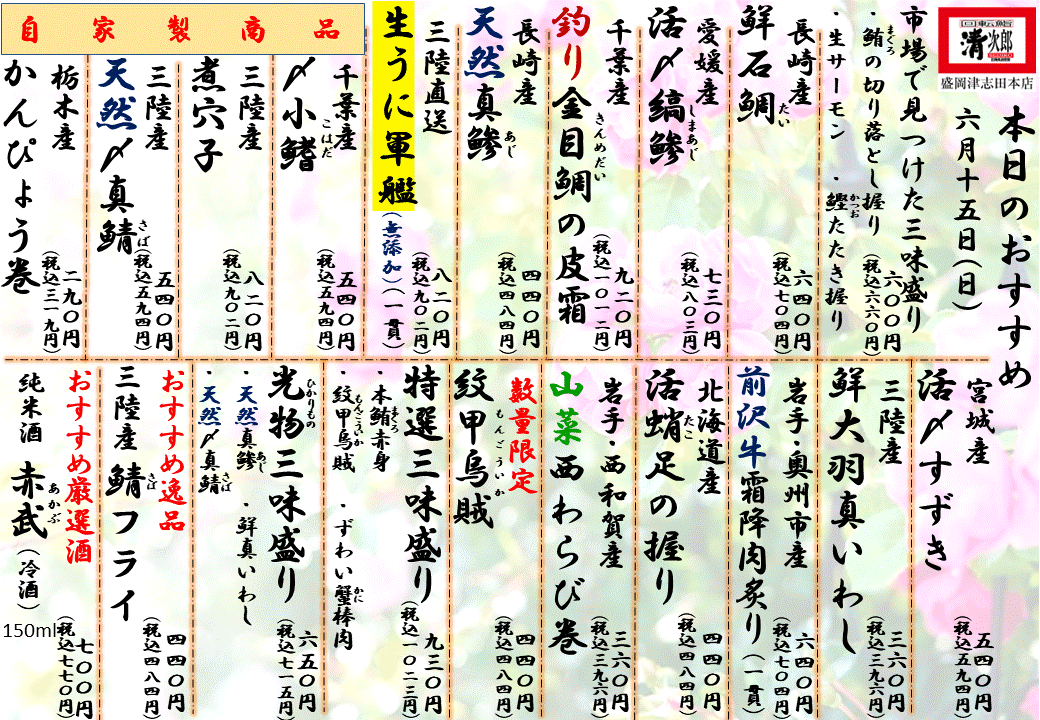 回転鮨
清次郎
盛岡津志田本店
本日のおすすめ
六月十五日(日)
市場で見つけた三味盛り
・鮪の切り落とし握り
まぐろ
・生サーモン ・鰹たたき握り
かつお
六〇〇円
(税込六六〇円)
長崎産
鮮石鯛
たい
六四〇円
(税込七〇四円)
愛媛産
活〆縞鯵
しまあじ
七三〇円
(税込八〇三円)
千葉産
釣り金目鯛の皮霜
きんめだい
九二〇円
(税込一〇一二円)
長崎産
天然真鯵
あじ
四四〇円
(税込四八四円)
三陸直送
生うに軍艦
(無添加)(一貫)
八二〇円
(税込九〇二円)
自家製商品
千葉産
〆小鰭
こはだ
五四〇円
(税込五九四円)
三陸産
煮穴子
八二〇円
(税込九〇二円)
三陸産
天然〆真鯖
さば
五四〇円
(税込五九四円)
栃木産
かんぴょう巻
二九〇円
(税込三一九円)
宮城産
活〆すずき
五四〇円
(税込五九四円)
三陸産
鮮大羽真いわし
三六〇円
(税込三九六円)
岩手・奥州市産
前沢牛霜降肉炙り(一貫)
六四〇円
(税込七〇四円)
北海道産
活蛸足の握り
たこ
四四〇円
(税込四八四円)
岩手・西和賀産
山菜西わらび巻
三六〇円
(税込三九六円)
数量限定
紋甲烏賊
もんごういか
四四〇円
(税込四八四円)
特選三味盛り
・本鮪赤身
まぐろ
・ずわい蟹棒肉
かに
・紋甲烏賊
もんごういか
九三〇円
(税込一〇二三円)
光物三味盛り
ひかりもの
・天然真鯵
あじ
・鮮真いわし
・天然〆真鯖
さば
六五〇円
(税込七一五円)
おすすめ逸品
三陸産 鯖フライ
さば
四四〇円
(税込四八四円)
おすすめ厳選酒
純米酒 赤武(冷酒)
あかぶ
150ml
七〇〇円
(税込七七〇円)